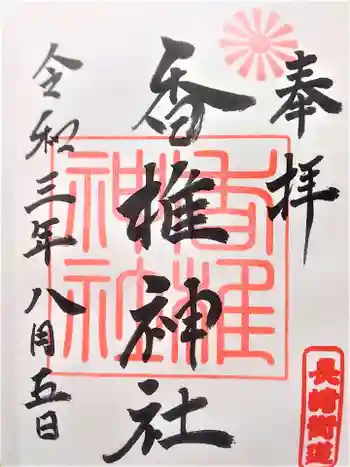 奉拝
香椎神社
令和三年八月五日
香椎神社
長崎街道